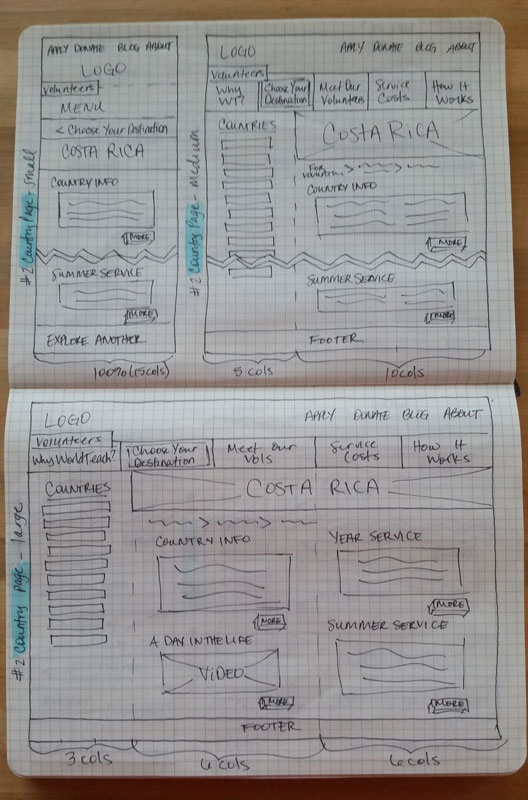 #2 Country Page - small
APPLY DONATE BLOG ABOUT
LOGO
Volunteers
MENU
< Choose Your Destination
COSTA RICA
COUNTRY INFO
MORE
SUMMER SERVICE
MORE
EXPLORE ANOTHER
100% (15 cols)
#2 Country Page - medium
LOGO
APPLY DONATE BLOG ABOUT
Volunteers
Why WT?
Choose Your Destination
Meet Our Volunteers
Service Costs
How It Works
COUNTRIES
COSTA RICA
FOR
COUNTRY INFO
MORE
SUMMER SERVICE
MORE
FOOTER
5 cols
10 cols
#2 Country Page - large
LOGO
APPLY DONATE BLOG ABOUT
Volunteers
Why WorldTeach?
Choose Your Destination
Meet Our Vols
Service Costs
How It Works
COUNTRIES
COSTA RICA
COUNTRY INFO
MORE
YEAR SERVICE
MORE
A DAY IN THE LIFE
VIDEO
MORE
SUMMER SERVICE
MORE
FOOTER
3 cols
6 cols
6 cols